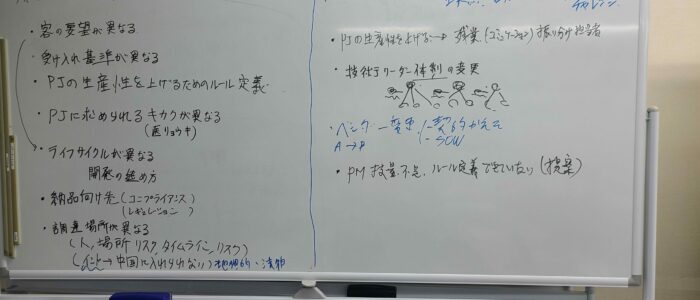 ・客の要望が異なる
・受け入れ基準が異なる
・PJの生産性を上げるためのルール定義
・PJに求められるキカクが異なる
(医リョウキ)
・ライフサイクルが異なる
開発の進め方
・納品向け先(コンプライアンス)
(レギュレーション)
・調達場所が異なる
(人,場所 リスク,タイムライン,リスク)
(インド→中国に入れられない) 地理的・法的
・PJの生産性を上げる→ 残業(コミュニケーション) 振り分け 担当者
・技術リーダー体制の変更
・ベンダー変更
A→B
契約
- SOW
・PM 技量不足,ルール定義できていない(提案)